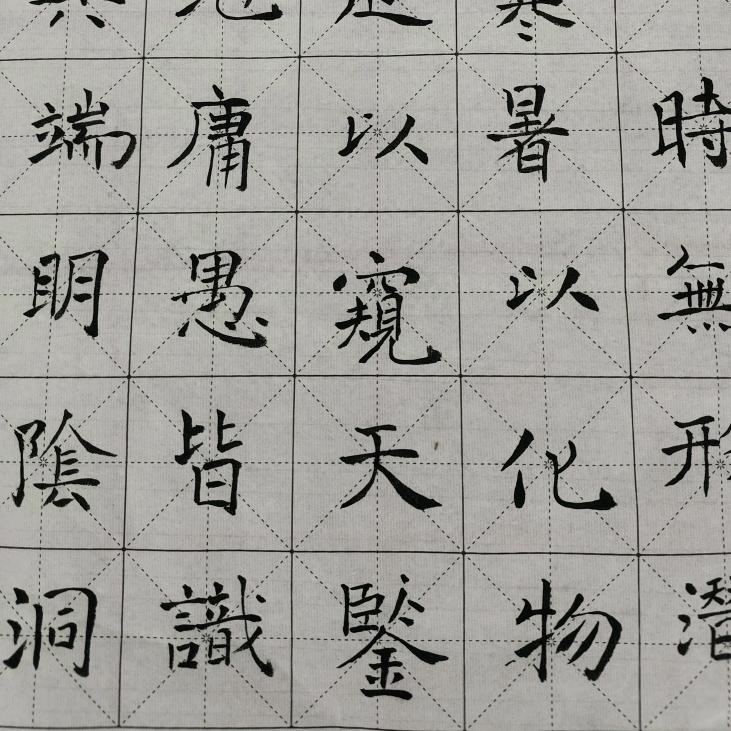 時無形潛
寒暑以化物
以窺天鑒
庸愚皆識
端明陰洞